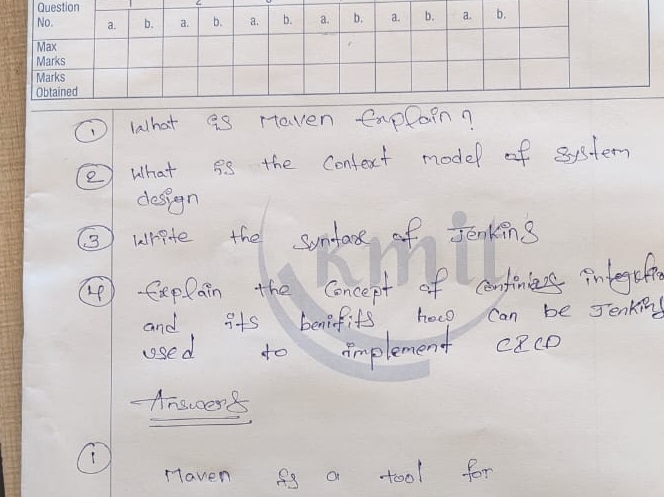 Question
No.
a. b. a. b. a. b. a. b. a. b. a. b.
Max
Marks
Marks
Obtained
kmit
① What is Maven Explain?
② What is the Context model of System
design
③ Write the Syntax of Jenkins
④ Explain the Concept of integratio
and its benifits how Can be Jenkins
used to implement CICD
Answers
① Maven is a tool for